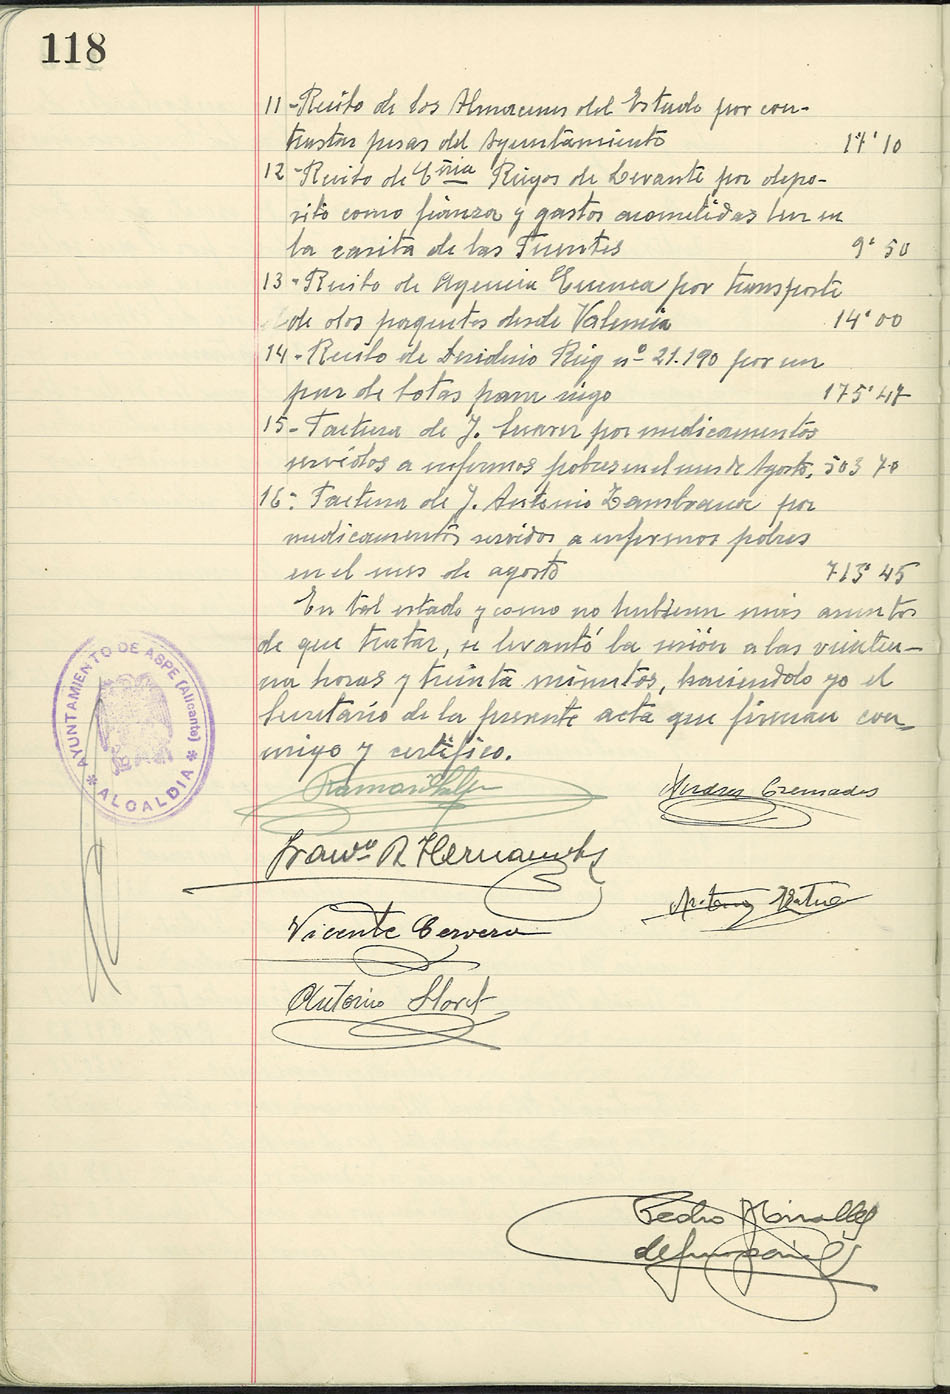 118
11-Recibo de los Almacenes del Estado por con-
trastar pesas del Ayuntamiento 17'10
12-Recibo de Cª Riegos de Levante por depo-
sito como fianza y gastos acometidas luz en
la casita de las Fuentes 9'50
13-Recibo de Agencia Cuenca por transporte
de dos paquetes desde Valencia 14'00
14-Recibo de Desiderio Reig nº 21.190 por un
par de botas para riego 175'47
15-Factura de J. Suarez por medicamentos
servidos a enfermos pobres en el mes de Agosto, 503 70
16- Factura de J. Antonio Zambrana por
medicamentos servidos a enfermos pobres
en el mes de agosto 713'45
En tal estado y como no hubieran más asuntos
de que tratar, se levantó la sesión a las veintiu-
na horas y treinta minutos, haciendolo yo el
Secretario de la presente acta que firman con-
migo y certifico.
AYUNTAMIENTO DE ASPE (Alicante)
* ALCALDIA *
Andres Cremades
Franco R Hernandez
Antonio
Vicente Cervera
Antonio Lloret
Pedro Miralles